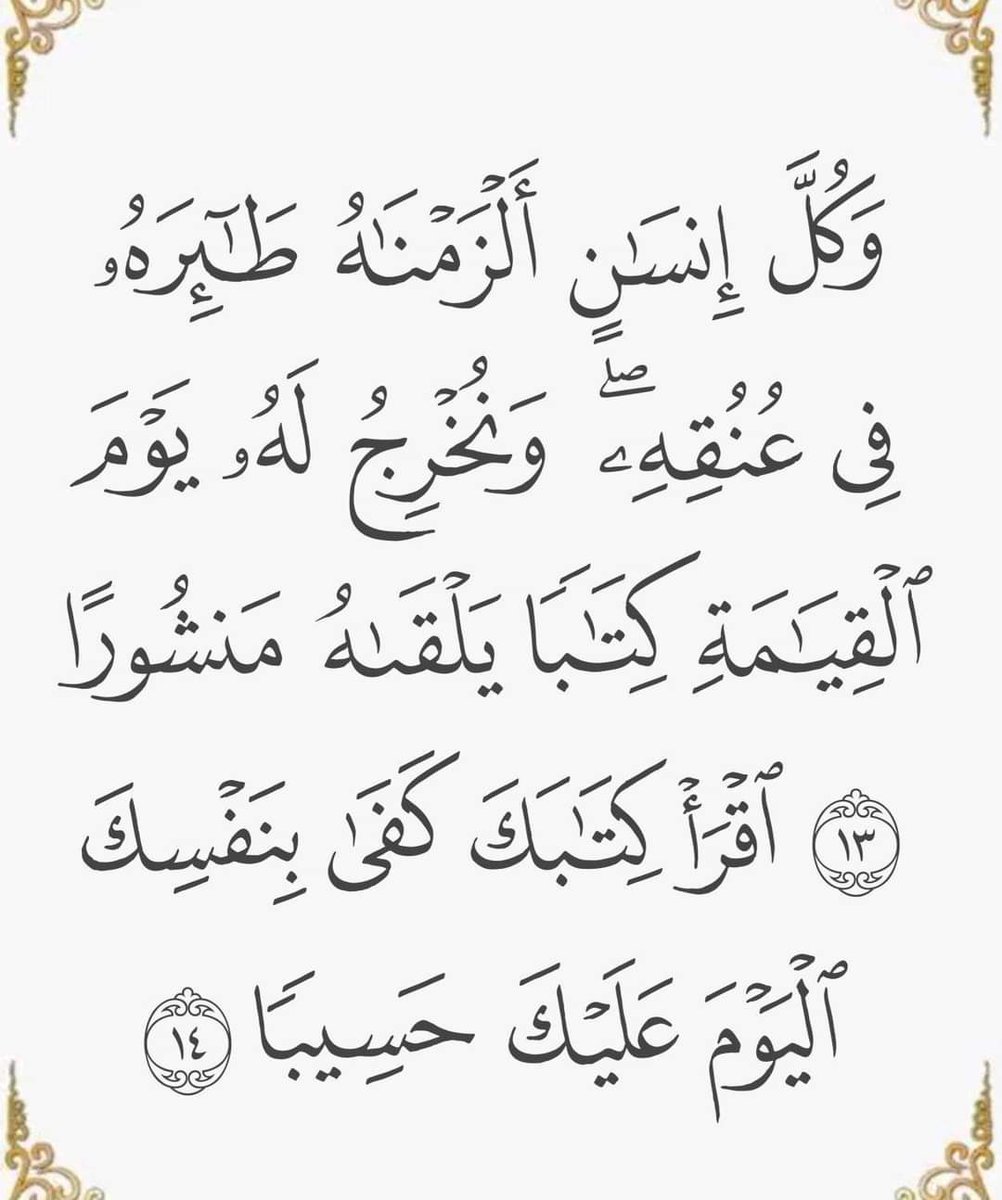 وَكُلَّ إِنسَٰنٍ أَلْزَمْنَٰهُ طَٰٓئِرَهُۥ
فِى عُنُقِهِۦ ۖ وَنُخْرِجُ لَهُۥ يَوْمَ
ٱلْقِيَٰمَةِ كِتَٰبًا يَلْقَىٰهُ مَنشُورًا
١٣ ٱقْرَأْ كِتَٰبَكَ كَفَىٰ بِنَفْسِكَ
ٱلْيَوْمَ عَلَيْكَ حَسِيبًا ١٤